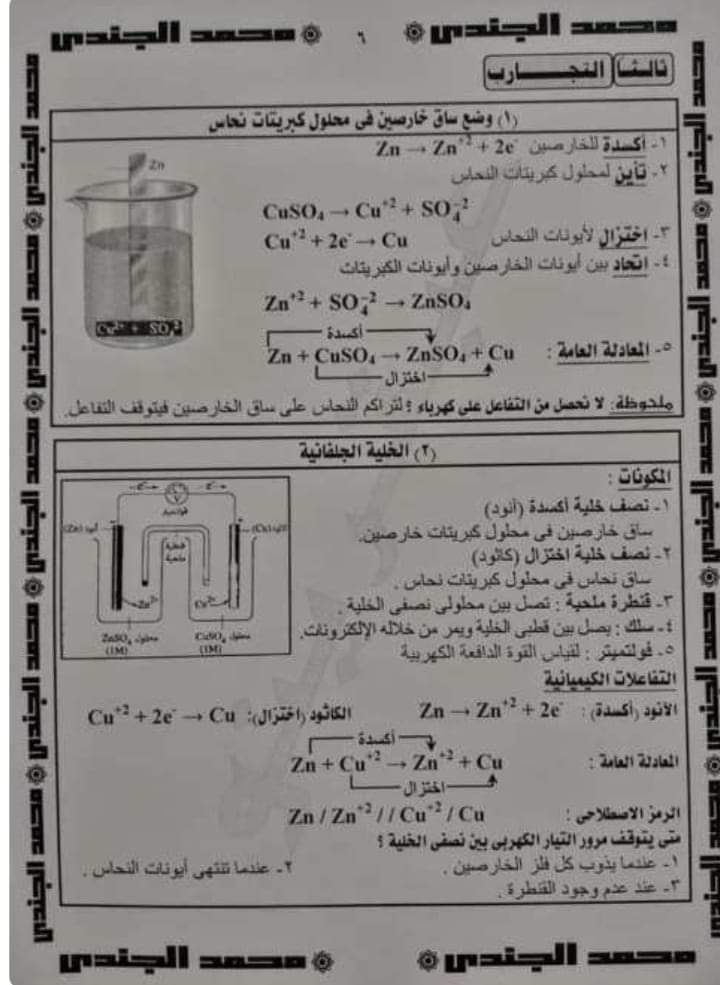 محمد الجندى ۞ محمد الجندى ۞ ٦ ۞ محمد الجندى
ثالثا التجارب
(١) وضع ساق خارصين فى محلول كبريتات نحاس
١- أكسدة للخارصين Zn → Zn⁺² + 2e⁻
٢- تأين لمحلول كبريتات النحاس
CuSO₄ → Cu⁺² + SO₄⁻²
٣- اختزال لأيونات النحاس Cu⁺² + 2e⁻ → Cu
٤- اتحاد بين أيونات الخارصين وأيونات الكبريتات
Zn⁺² + SO₄⁻² → ZnSO₄
أكسدة
٥- المعادلة العامة : Zn + CuSO₄ → ZnSO₄ + Cu
اختزال
Zn
Cu²⁺ + SO₄²⁻
ملحوظة: لا نحصل من التفاعل على كهرباء ؟ لتراكم النحاس على ساق الخارصين فيتوقف التفاعل.
(٢) الخلية الجلفانية
المكونات :
١- نصف خلية أكسدة (أنود)
ساق خارصين فى محلول كبريتات خارصين.
٢- نصف خلية اختزال (كاثود)
ساق نحاس فى محلول كبريتات نحاس .
٣- قنطرة ملحية : تصل بين محلولى نصفى الخلية .
٤- سلك : يصل بين قطبى الخلية ويمر من خلاله الإلكترونات.
٥- فولتميتر : لقياس القوة الدافعة الكهربية
e⁻ V e⁻
فولتميتر
أنود (Zn)
كاثود (Cu)
قنطرة
ملحية
Zn²⁺
Cu²⁺
محلول ZnSO₄
(1M)
محلول CuSO₄
(1M)
التفاعلات الكيميائية
الأنود (أكسدة): Zn → Zn⁺² + 2e⁻ الكاثود (اختزال): Cu⁺² + 2e⁻ → Cu
أكسدة
المعادلة العامة : Zn + Cu⁺² → Zn⁺² + Cu
اختزال
الرمز الاصطلاحى : Zn / Zn⁺² // Cu⁺² / Cu
متى يتوقف مرور التيار الكهربى بين نصفى الخلية ؟
١- عندما يذوب كل فلز الخارصين . ٢- عندما تنتهى أيونات النحاس .
٣- عند عدم وجود القنطرة .
محمد الجندى ۞ ۞ محمد الجندى